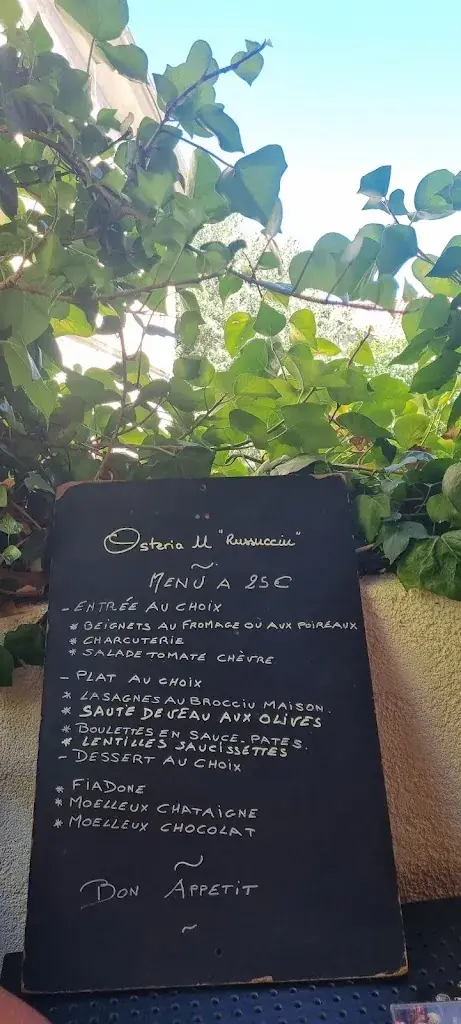 Osteria U "Russucciu"
~
MENU A 25€
- ENTRÉE AU CHOIX
* BEIGNETS AU FROMAGE OÙ AUX POIREAUX
* CHARCUTERIE
* SALADE TOMATE CHÈVRE
- PLAT AU CHOIX
* LASAGNES AU BROCCIU MAISON.
* SAUTE DE VEAU AUX OLIVES
* BOULETTES EN SAUCE - PATES.
* LENTILLES SAUCISSETTES
- DESSERT AU CHOIX
* FIADONE
* MOELLEUX CHATAIGNE
* MOELLEUX CHOCOLAT
~
BON APPETIT
~